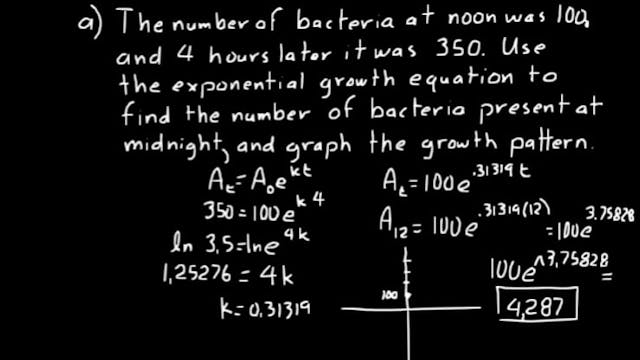 a) The number of bacteria at noon was 100,
and 4 hours later it was 350. Use
the exponential growth equation to
find the number of bacteria present at
midnight, and graph the growth pattern.
Aₜ = A₀e^kt
350 = 100e^k4
ln 3.5 = ln e^4k
1.25276 = 4k
k = 0.31319
Aₜ = 100e^.31319t
A₁₂ = 100e^.31319(12) = 100e^3.75828
100e^3.75828 =
4,287
100